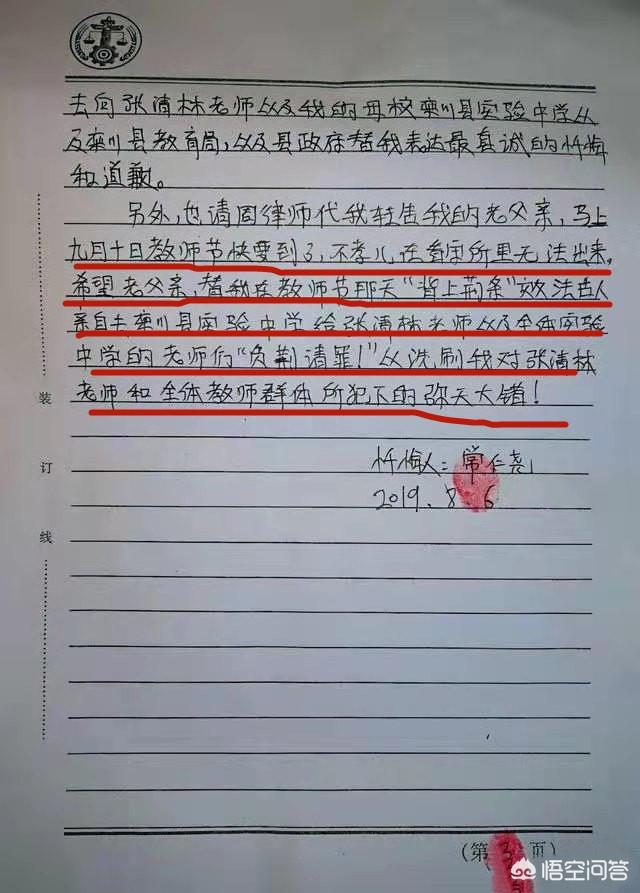 去向张清林老师以及我的母校栾川县实验中学以
及栾川县教育局,以及县政府替我表达最真诚的忏悔
和道歉。
另外,也请周律师代我转告我的老父亲,马上
九月十日教师节快要到了,不孝儿在看守所里无法出来,
希望老父亲,替我在教师节那天“背上荆条”效法古人
亲自去栾川县实验中学给张清林老师以及全体实验
中学的老师们“负荆请罪!”以洗刷我对张清林
老师和全体教师群体所犯下的弥天大错!
忏悔人:常仁尧
2019.8.6
装
订
线
(第3页)
悟空问答